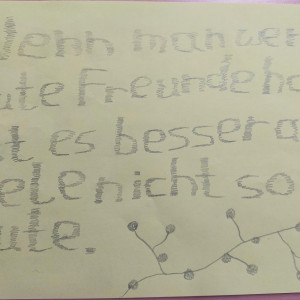 Wenn man wen
ute Freunde ha
t es besser a
ele nicht so
ute.